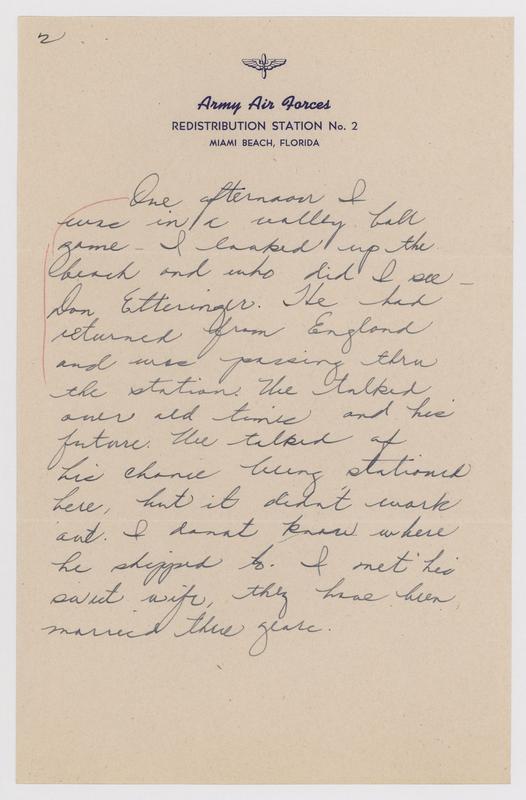 2
Army Air Forces
REDISTRIBUTION STATION No. 2
MIAMI BEACH, FLORIDA
One afternoon I
was in a valley ball
game – I looked up the
beach and who did I see –
Don Etteringer. He had
returned from England
and was passing thru
the station. We talked
over old times and his
future. We talked of
his chance being stationed
here, but it didn't work
out. I donnt know where
he shipped to. I met his
sweet wife, they have been
married three years.